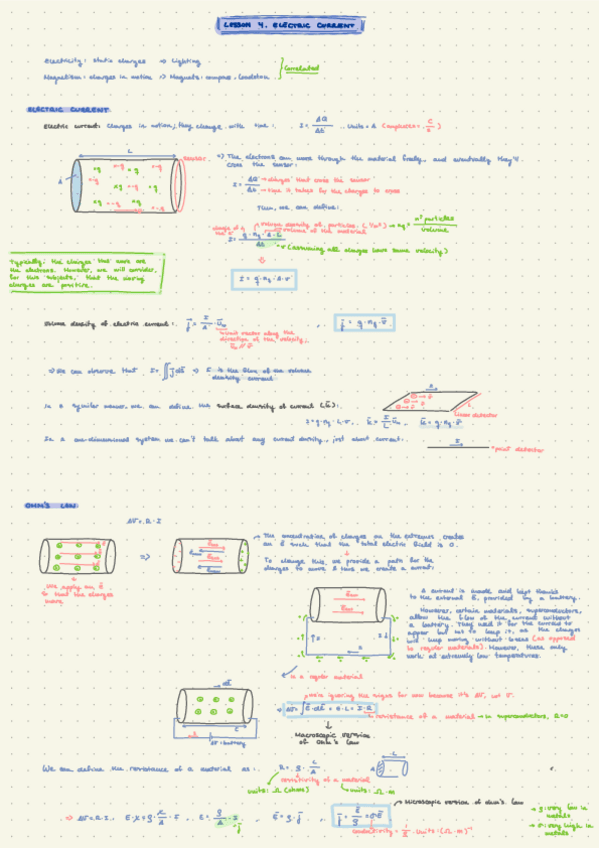 LESSON 4. ELECTRIC CURRENT
Electricity: static charges → Lighting
Magnetism: charges in motion → Magnets: compass, loadstone
Correlated
ELECTRIC CURRENT
Electric current: Charges in motion, they change with time: I = ΔQ/Δt . Units = A (amperes = C/s)
L
sensor
A
⇒ The electrons can move through the material freely, and eventually they'll
cross the sensor:
I = ΔQ/Δt → charges that cross the sensor
→ time it takes for the charges to cross
Then, we can define:
n° particles
volume
→ v (assuming all charges have same velocity)
I = q · nq · A · v
Typically, the charges that move are
the electrons. However, we will consider,
for this subject, that the moving
charges are positive.
Volume density of electric current: j = I/A · u
→ unit vector along the
direction of the velocity,
j = q · nq · v
→ We can observe that I = ∬ j ds → I is the flux of the volume
density current
In a similar manner we can define the surface density of current (k):
I = q · n · L · v, k = I/L · u, k = q · n · v
linear detector
In a one-dimensional system we can't talk about any current density, just about current:
I
point detector
OHM'S LAW
ΔV = R · I
⇒
We apply an E
so that the charges
move
→ The concentration of charges on the extremes creates
an E such that the total electric field is 0.
To change this, we provide a path for the
charges to move & thus we create a current:
A current is made and kept thanks
to the external E, provided by a battery.
However, certain materials, superconductors,
allow the flow of the current without
a battery. They need it for the current to
appear but not to keep it, as the charges
will keep moving without losses (as opposed
to regular materials). However, these only
work at extremely low temperatures.
In a regular material
we're ignoring the signs for now because it's ΔV, not V.
ΔV = ∫ E · dl = E · L = I · R
→ resistance of a material → in superconductors, R=0
Macroscopic version
of Ohm's Law
ΔV = battery
We can define the resistance of a material as: R = ρ · L/A
resistivity of a material
units: Ω (ohms)
units: Ω · m
L
A
Microscopic version of Ohm's Law
⇒ ΔV = R · I , E · L = ρ · L/A · I , E = ρ/A · I , E = ρ · j , j = E/ρ = σE
conductivity = 1/ρ . Units: (Ω · m)⁻¹
→ ρ: very low in
metals
→ σ: very high in
metals